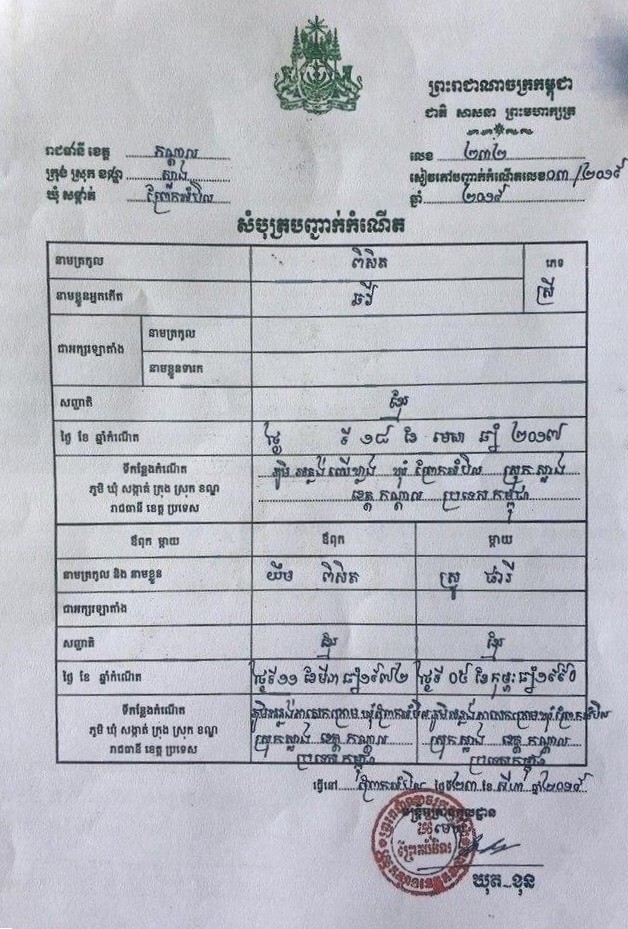 ព្រះរាជាណាចក្រកម្ពុជា
ជាតិ សាសនា ព្រះមហាក្សត្រ
រាជធានី ខេត្ត កណ្តាល
ក្រុង ស្រុក ខណ្ឌ ស្អាង
ឃុំ សង្កាត់ ព្រែកអំបិល
លេខ ២៣២
សៀវភៅបញ្ជាក់កំណើតលេខ ០៣/២០១៩
ឆ្នាំ ២០១៩
សំបុត្របញ្ជាក់កំណើត
នាមត្រកូល ពិសិត ភេទ
នាមខ្លួនអ្នកកើត ឆវី ស្រី
ជាអក្សរឡាតាំង នាមត្រកូល
នាមខ្លួនទារក
សញ្ជាតិ ខ្មែរ
ថ្ងៃ ខែ ឆ្នាំកំណើត ថ្ងៃ ទី ១៨ ខែ មេសា ឆ្នាំ ២០១៧
ទីកន្លែងកំណើត
ភូមិ ឃុំ សង្កាត់ ក្រុង ស្រុក ខណ្ឌ
រាជធានី ខេត្ត ប្រទេស
ភូមិ ឃុំ ព្រែកអំបិល ស្រុក ស្អាង
ខេត្ត កណ្តាល ប្រទេស កម្ពុជា
ឪពុក ម្តាយ ឪពុក ម្តាយ
នាមត្រកូល និង នាមខ្លួន យ៉ម ពិសិត ស្រូ ផារី
ជាអក្សរឡាតាំង
សញ្ជាតិ ខ្មែរ ខ្មែរ
ថ្ងៃ ខែ ឆ្នាំកំណើត ថ្ងៃទី ១១ ខែ មីនា ឆ្នាំ ១៩៧២ ថ្ងៃទី ០៥ ខែ កុម្ភៈ ឆ្នាំ ១៩៩០
ទីកន្លែងកំណើត
ភូមិ ឃុំ សង្កាត់ ក្រុង ស្រុក ខណ្ឌ
រាជធានី ខេត្ត ប្រទេស
ស្រុក ស្អាង ខេត្ត កណ្តាល
ប្រទេស កម្ពុជា
ស្រុក ស្អាង ខេត្ត កណ្តាល
ប្រទេស កម្ពុជា
ធ្វើនៅ ព្រែកអំបិល ថ្ងៃទី ២៣ ខែ សីហា ឆ្នាំ ២០១៩
មន្ត្រីអត្រានុកូលដ្ឋាន
ព្រែកអំបិល
ឃុត ខុន